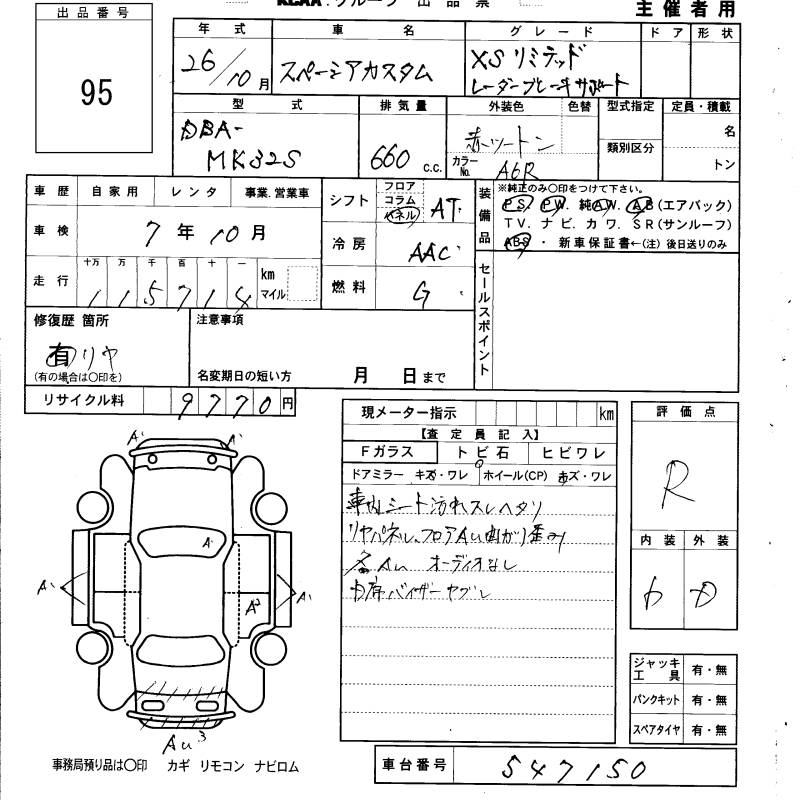 KCAA・グループ 出品票
主催者用
出品番号
95
年式 車名 グレード ドア 形状
26/10月 スペーシアカスタム XSリミテッド
レーダーブレーキサポート
型式 排気量 外装色 色替 型式指定 定員・積載
DBA-
MK32S 660 c.c. 赤ツートン 類別区分 名
カラーNo. A6R トン
車歴 自家用 レンタ 事業.営業車
車検 7年10月
走行 十万 万 千 百 十 一
115714 km マイル
シフト フロア コラム パネル AT
冷房 AAC
燃料 G
装備品 ※純正のみ〇印をつけて下さい。
PS. PW. 純AW. AB(エアバック)
TV. ナビ. カワ. SR(サンルーフ)
ABS ・ 新車保証書←(注)後日送りのみ
セールスポイント
修復歴 箇所
有 リヤ
(有の場合は〇印を)
注意事項
名変期日の短い方 月 日まで
リサイクル料 9770円
現メーター指示 km
【査定員記入】
Fガラス トビ石 ヒビワレ
ドアミラー キズ・ワレ ホイール(CP) キズ・ワレ
車内シート汚れスレヘタリ
リヤパネル、フロアAu曲がり歪み
各Au オーディオなし
バイザーヤブレ
評価点
R
内装 外装
D
ジャッキ工具 有・無
パンクキット 有・無
スペアタイヤ 有・無
A¹ A¹
A¹
A¹ A² A¹
Au³
事務局預り品は〇印 カギ リモコン ナビロム
車台番号 547150